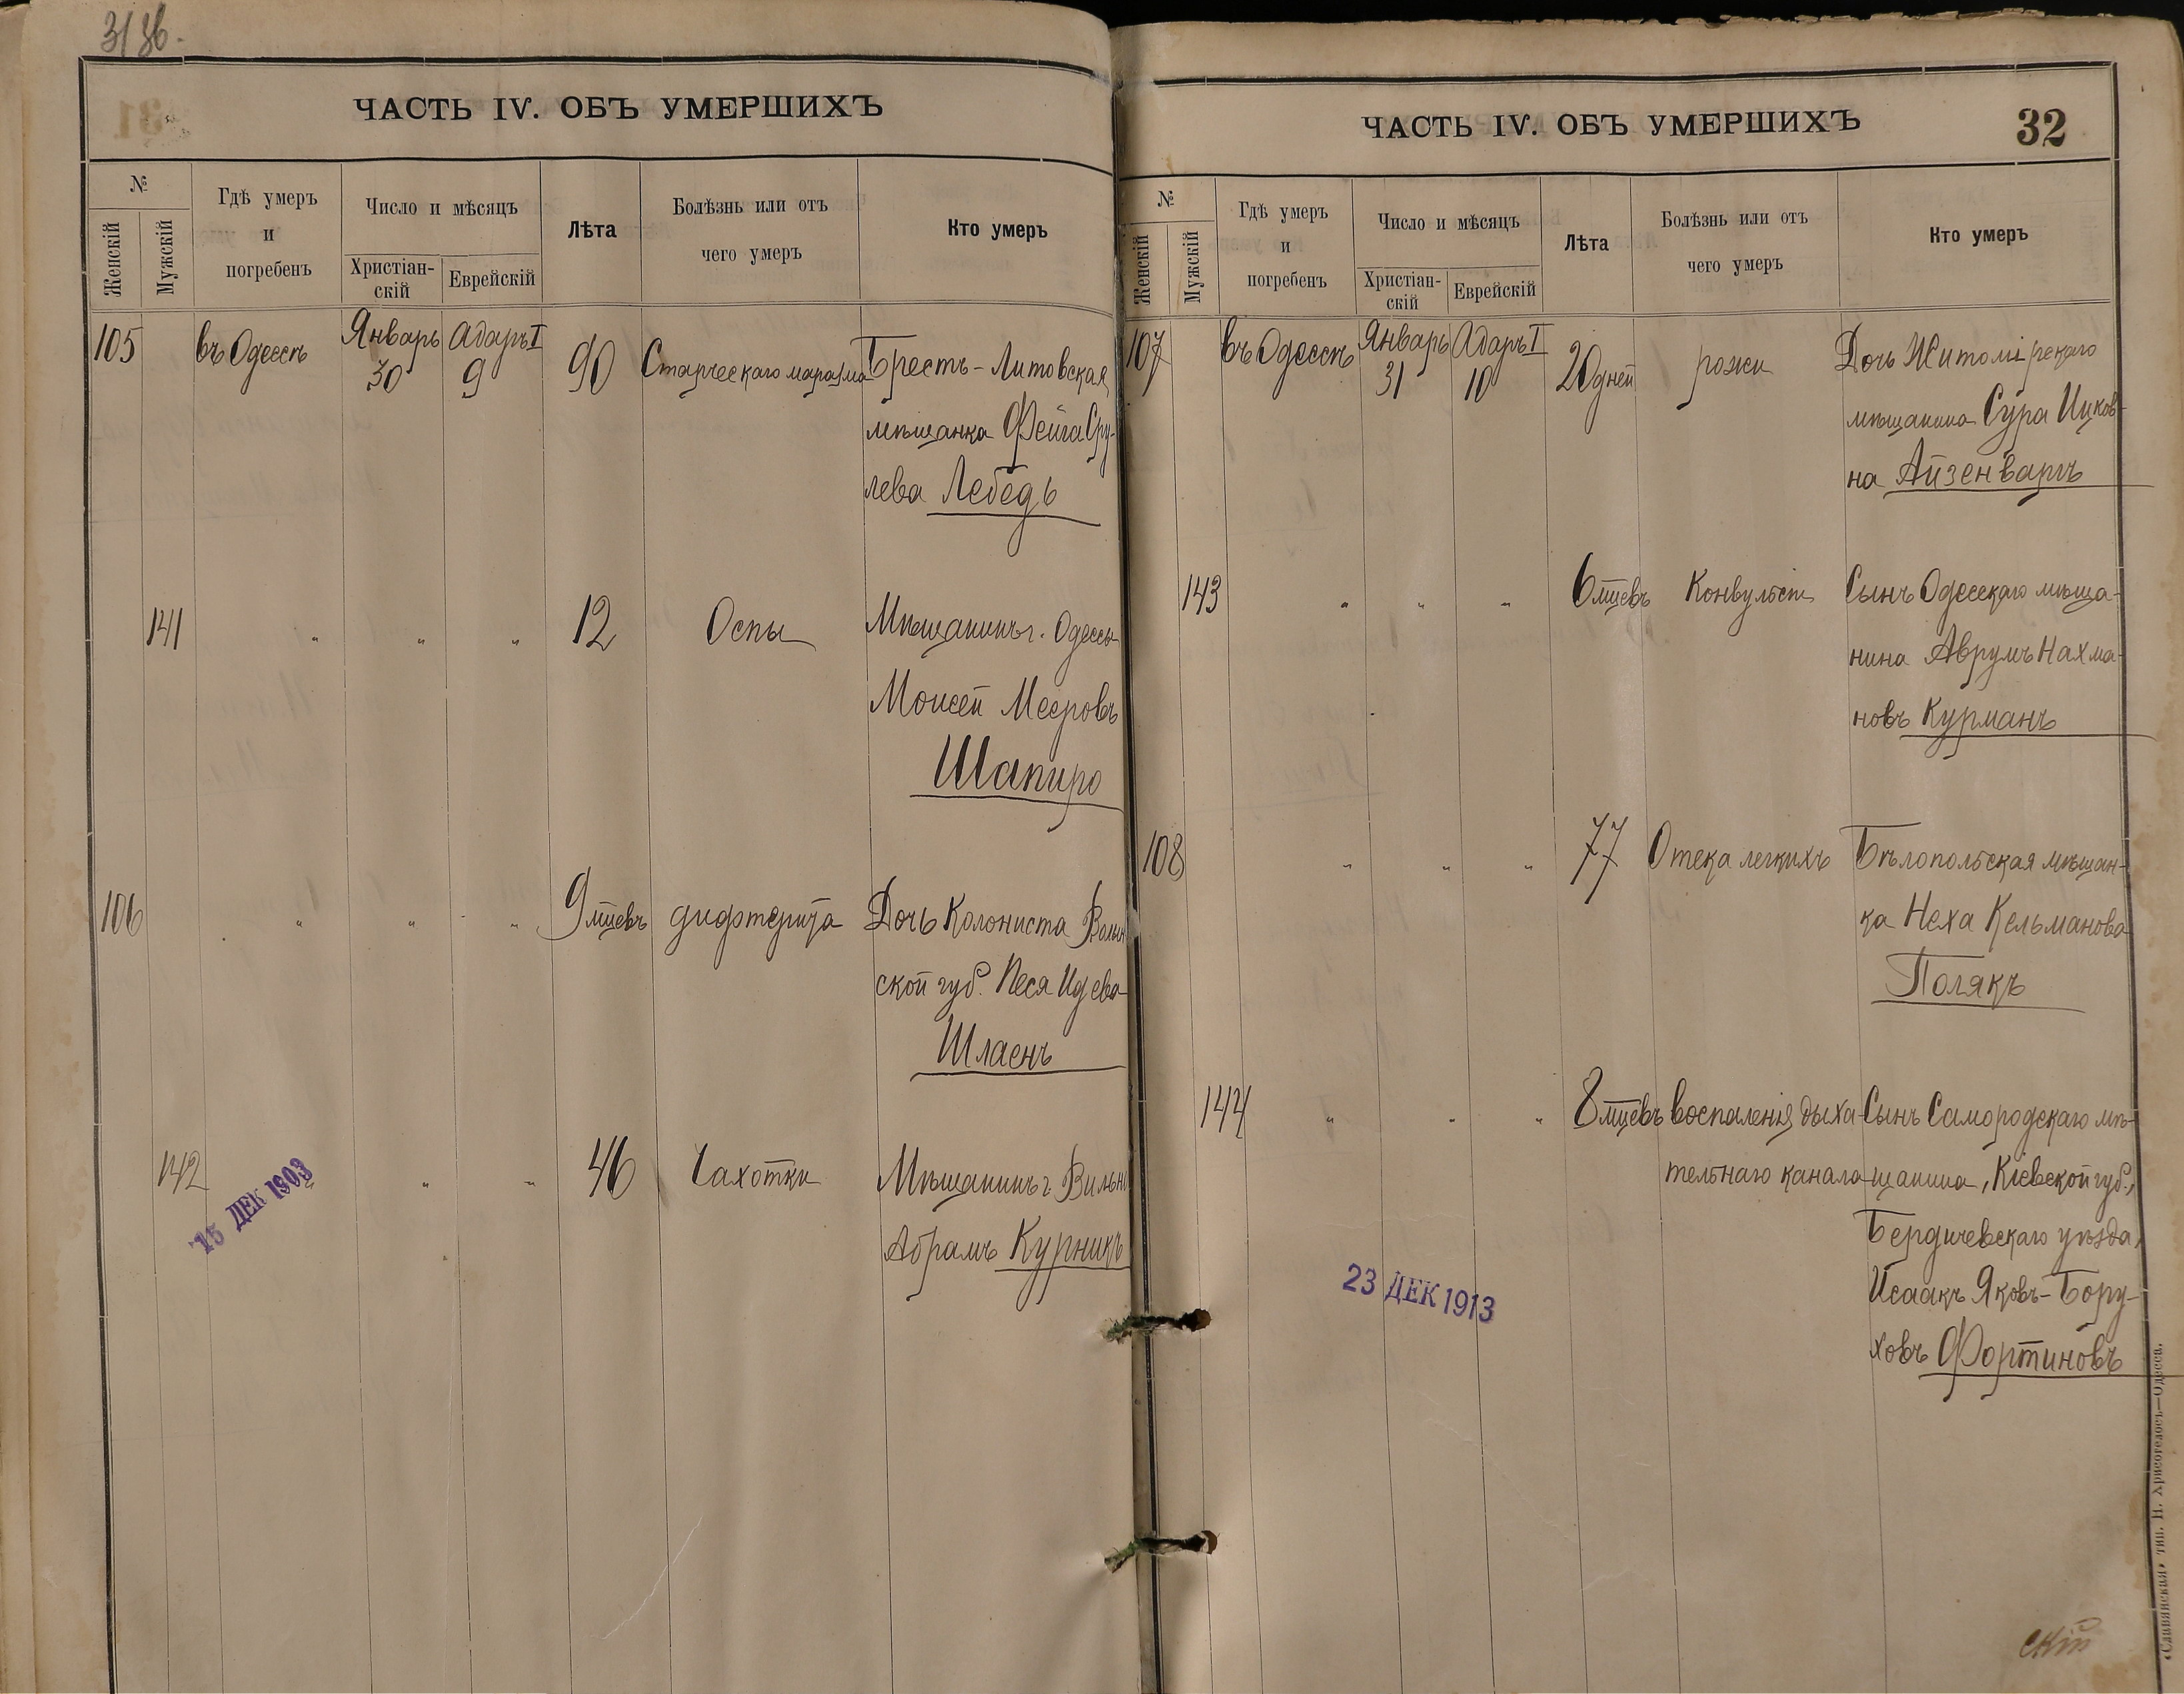 31 зв.
ЧАСТЬ IV. ОБЪ УМЕРШИХЪ
№
Женскій
Мужскій
Гдѣ умеръ
и
погребенъ
Число и мѣсяцъ
Христіан-
скій
Еврейскій
Лѣта
Болѣзнь или отъ
чего умеръ
Кто умеръ
105 въ Одессѣ Январь 30 Адаръ I 9 90 Старческаго маразма Брестъ-Литовская
мѣщанка Фейга Сру-
лева Лебедь
141 " " " 12 Оспы Мѣщанинъ г. Одессы
Моисей Мееровъ
Шапиро
106 " " " 9 мцевъ дифтерита Дочь Колониста Волын
ской губ. Песя Идева
Шлаенъ
142 " " " 46 Чахотки Мѣщанинъ г. Вильны
Абрамъ Курникъ
15 ДЕК 1903
ЧАСТЬ IV. ОБЪ УМЕРШИХЪ
32
№
Женскій
Мужскій
Гдѣ умеръ
и
погребенъ
Число и мѣсяцъ
Христіан-
скій
Еврейскій
Лѣта
Болѣзнь или отъ
чего умеръ
Кто умеръ
107 въ Одессѣ Январь 31 Адаръ I 10 20 дней рожи Дочь Житомірскаго
мѣщанина Сура Ицков-
на Айзенваргъ
143 " " " 6 мцевъ Конвульсіи Сынъ Одесскаго мѣща-
нина Аврумъ Нахма-
новъ Курманъ
108 " " " 77 Отека легкихъ Бѣлопольская мѣщан-
ка Неха Кельманова
Полякъ
144 " " " 8 мцевъ воспаленія дыха- Сынъ Самородскаго мѣ-
тельнаго канала щанина, Кіевской губ.,
Бердичевскаго уѣзда,
Исаакъ Яковъ-Бору-
ховъ Фортиновъ
23 ДЕК 1913
скій
«Славянская» тип. Н. Хрисогелосъ.—Одесса.